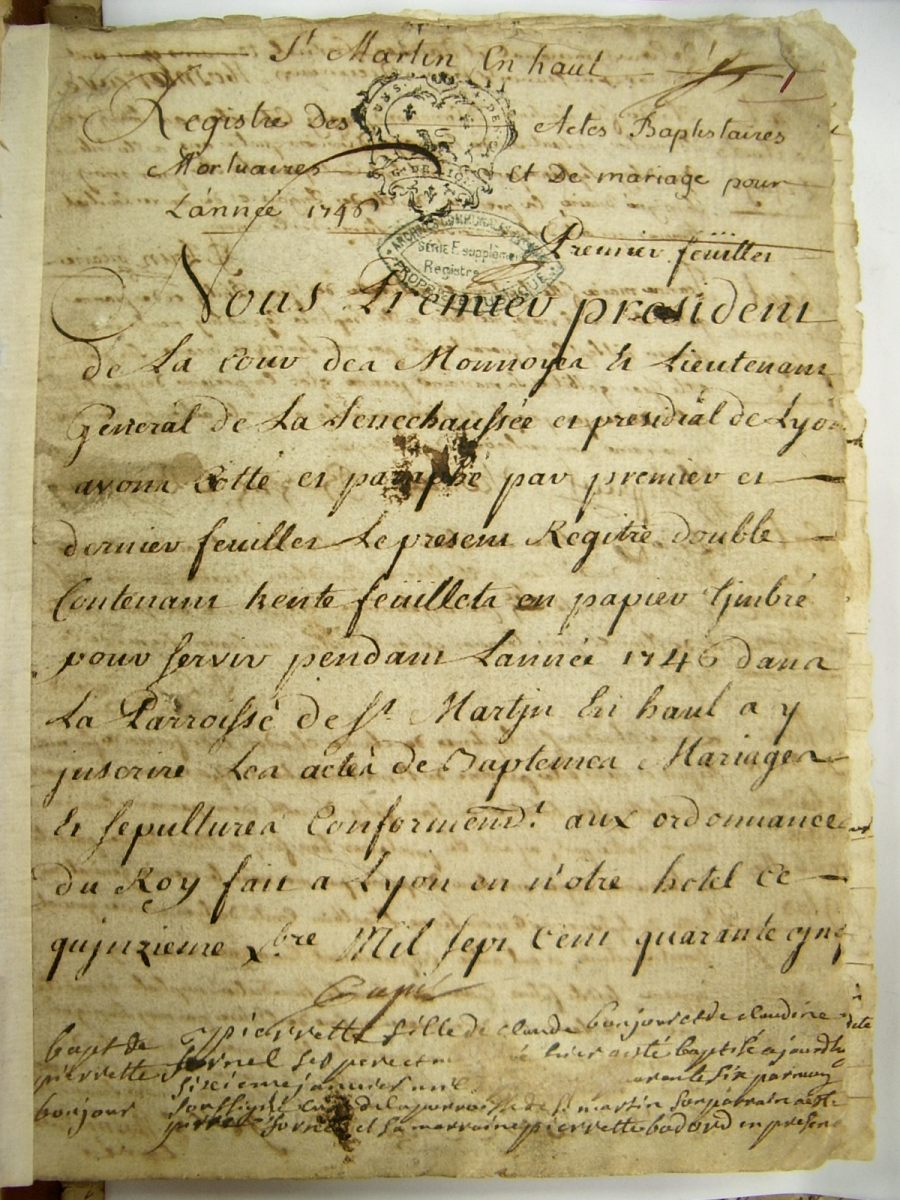 St Martin En haut
Registre Des Actes Baptistaires
Mortuaires Et De mariage pour
L'année 1746
ARCHIVES COMMUNALES
SÉRIE E supplément
Registre
PROPRIÉTÉ PUBLIQUE
Premier feüillet
Nous Premier president
de La cour des Monnoyes Et Lieutenant
General de La Senechaussée et presidial de Lyon
avons Cotté et paraphé par premier et
dernier feuillet Le present Regitre double
Contenant trente feüillets en papier timbré
pour servir pendant L'année 1746 dans
La Parroisse de St Martjn En haut a y
jnscrire Les actes de Baptemes Mariages
Et sepultures Conformemt. aux ordonnances
du Roy fait a Lyon en n'otre hotel ce
qujnzieme xbre Mil sept Cent quarante cjnq
bapt de
pierrette
bonjour
pierrette fille de claude bonjour et de claudine
fornel ses pere et m hier a esté baptisé ajourdhuy
sixieme janvier mil six par moy
soussigné de la parroisse de st martin son parrain a esté
fornel et sa marraine pierrette badord en presen